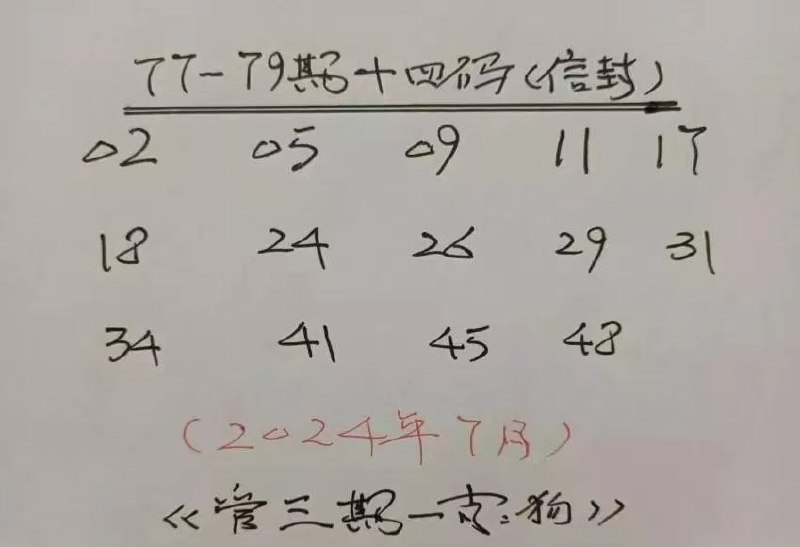 77-79期十四码(信封)
02 05 09 11 17
18 24 26 29 31
34 41 45 48
(2024年7月)
《管三期一肖:狗》